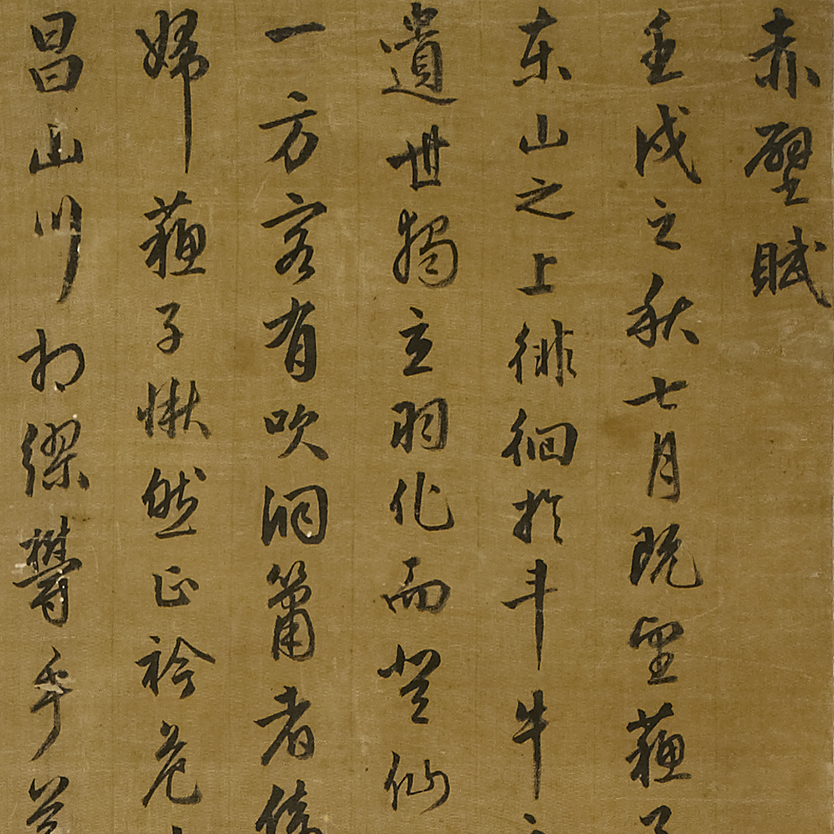 赤壁賦
壬戌之秋七月既望蘇子
東山之上徘徊於斗牛之
遺世獨立羽化而登仙
一方客有吹洞簫者倚
婦蘇子愀然正襟危
昌山川相繆鬱乎蒼